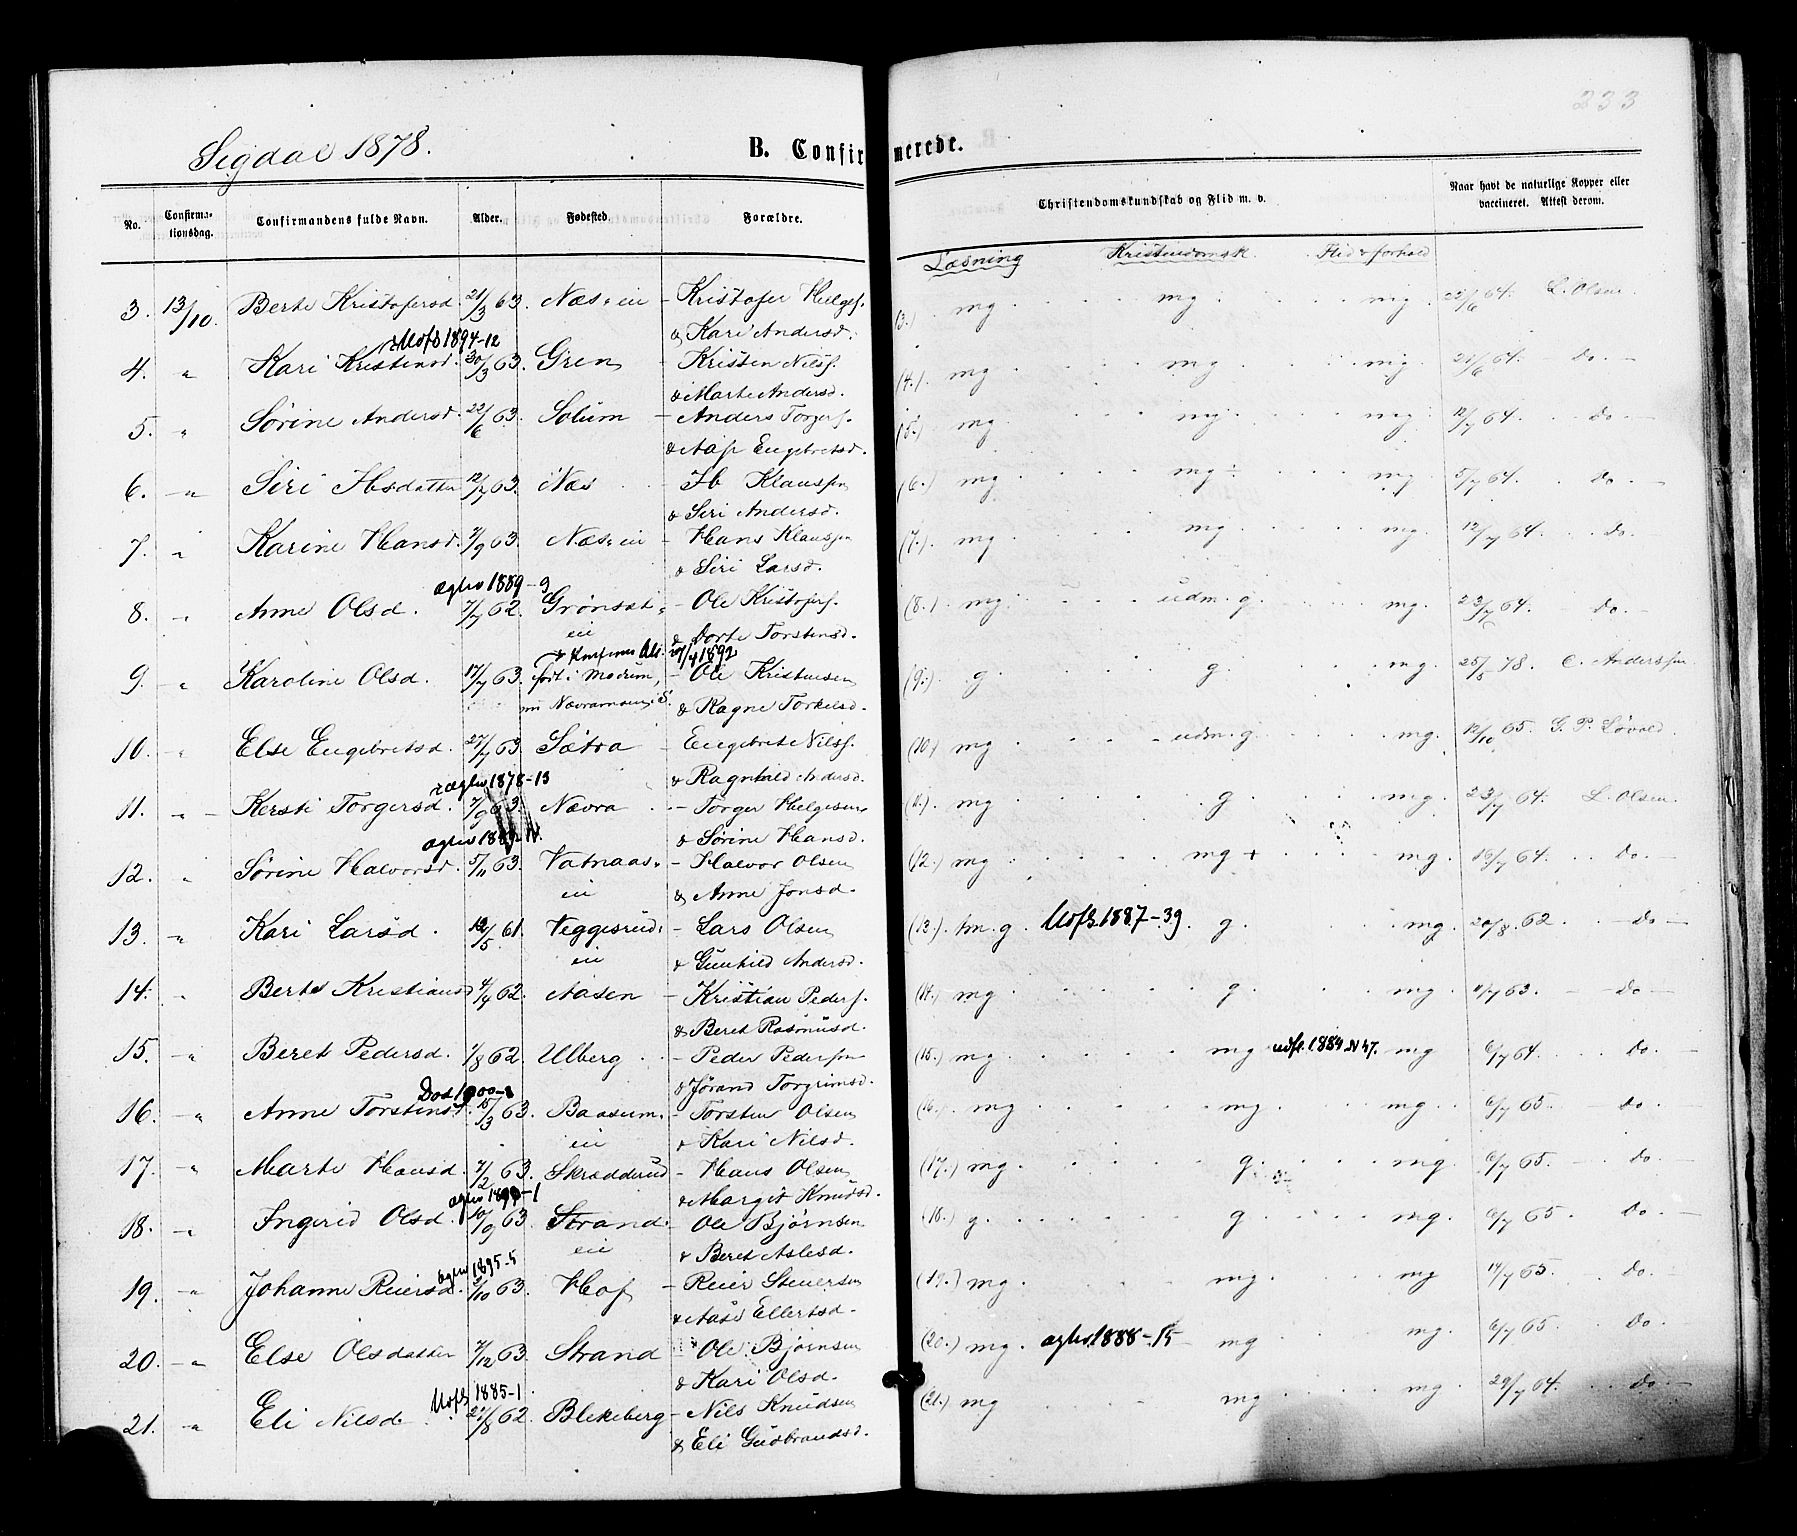 233
Sigdal 1878.
B. Confirmerede.
No. Confirmationsdag. Confirmandens fulde Navn. Alder. Fødested. Forældre. Christendomskundskab og Flid m. v. Naar havt de naturlige Kopper eller vaccineret. Attest derom.
Læsning Kristendomsk. Flid & forhold
3. 13/10. Berte Kristofersd. 21/3 63. Næs. eie - Kristofer Helgesf. (3.) mg mg mg. 25/6 64. L. Olsen.
& Kari Andersd.
Udfl 1894-12
4. " Kari Kristensd. 30/3 63. Gren - Kristen Nilsf. (4.) mg mg mg. 21/6 64. - Do. -
& Marte Andersd.
5. " Sørine Andersd. 22/6 63. Solum - Anders Torgersf. (5.) mg mg. mg. 12/7 64. Do -
& Aase Engebretsd.
6. - " Siri Ibsdatter 12/7 63. Næs - Ib Klaussen (6.) mg mg ÷ mg. 5/7 64. Do. -
& Siri Andersd.
7. " Karine Hansd. 7/9 63. Næs. eie - Hans Klaussen (7.) mg. mg mg. 12/7 64. Do.
& Siri Larsd.
ægtev 1889-9
8. " Anne Olsd. 7/7 62. - Ole Kristofersf. (8.) mg. udm. g. mg. 23/7 64. - Do. -
eie & Dorte Torstensd.
27/4 1892
9. " Karoline Olsd. 17/7 63. født i Modum, - Ole Kristensen (9.) g. g. mg. 25/5 78. C. Anderssen
& Ragne Torkelsd.
10. " Else Engebretsd. 27/7 63. Sætra - Engebret Nilsf. (10) mg udm. g. mg. 12/10 65. G. P. Løvold
& Ragnhild Andersd.
ægtev 1878-13
11. " - Kersti Torgersd. 7/9 63. Nævra - Torger Helgesen (11.) mg g. mg. 23/7 64. L. Olsen.
& Sørine Hansd.
12. " Sørine Halvorsd. 5/11 63. Vatnaas. - Halvor Olsen (12.) mg mg + mg. 19/7 64. Do.
eie & Anne Jonsd.
13. " Kari Larsd. 12/5 61. Veggesrud. - Lars Olsen (13.) tm. g. Udfl. 1887-39. g. mg. 20/8. 62. - Do -
eie & Gunhild Andersd.
14. " Berte Kristiansd 4/7 62. Aasen - Kristian Pedersf. (14.) mg g. mg. 11/7 63. - Do -
& Beret Rasmusd.
15. - " Beret Pedersd. 1/8 62. Ulberg - Peder Pedersen (15.) mg. mg udfl. 1884 N 47. mg 6/7 64. Do. -
& Jørand Torgrimsd.
Død 1900-8
16. - " Anne Torstensd. 15/3 63. Baasum. - Torsten Olsen (16.) mg mg. mg. 6/7 65. Do.
eie & Kari Nilsd.
17. - " Marte Hansd. 7/2 63. Skredderud - Hans Olsen (17.) mg. g. mg. 6/7 65. Do. -
& Margit Knudsd.
18. " Ingerid Olsd. 10/9 63. Strand. - Ole Bjørnsen (18.) g. g mg. 6/7 65. Do. -
eie & Beret Aslesd.
ægtev 1895-5
19. - " Johanne Reiersd. 5/10 63. Hof - Reier Steversen (19.) mg. mg. mg 14/7 65. Do.
& Aase Ellertsd.
20. - " Else Olsdatter 7/12 63. Strand - Ole Bjørnsen (20.) mg. ægtev. 1888-15 mg mg. 6/7 65. Do.
& Kari Olsd.
Udfl 1885-1.
21. - " Eli Nilsd. 21/8 62. Blekeberg - Nils Knudsen (21.) mg mg. mg. 29/7 64. Do. -
& Eli Gudbrandsd.